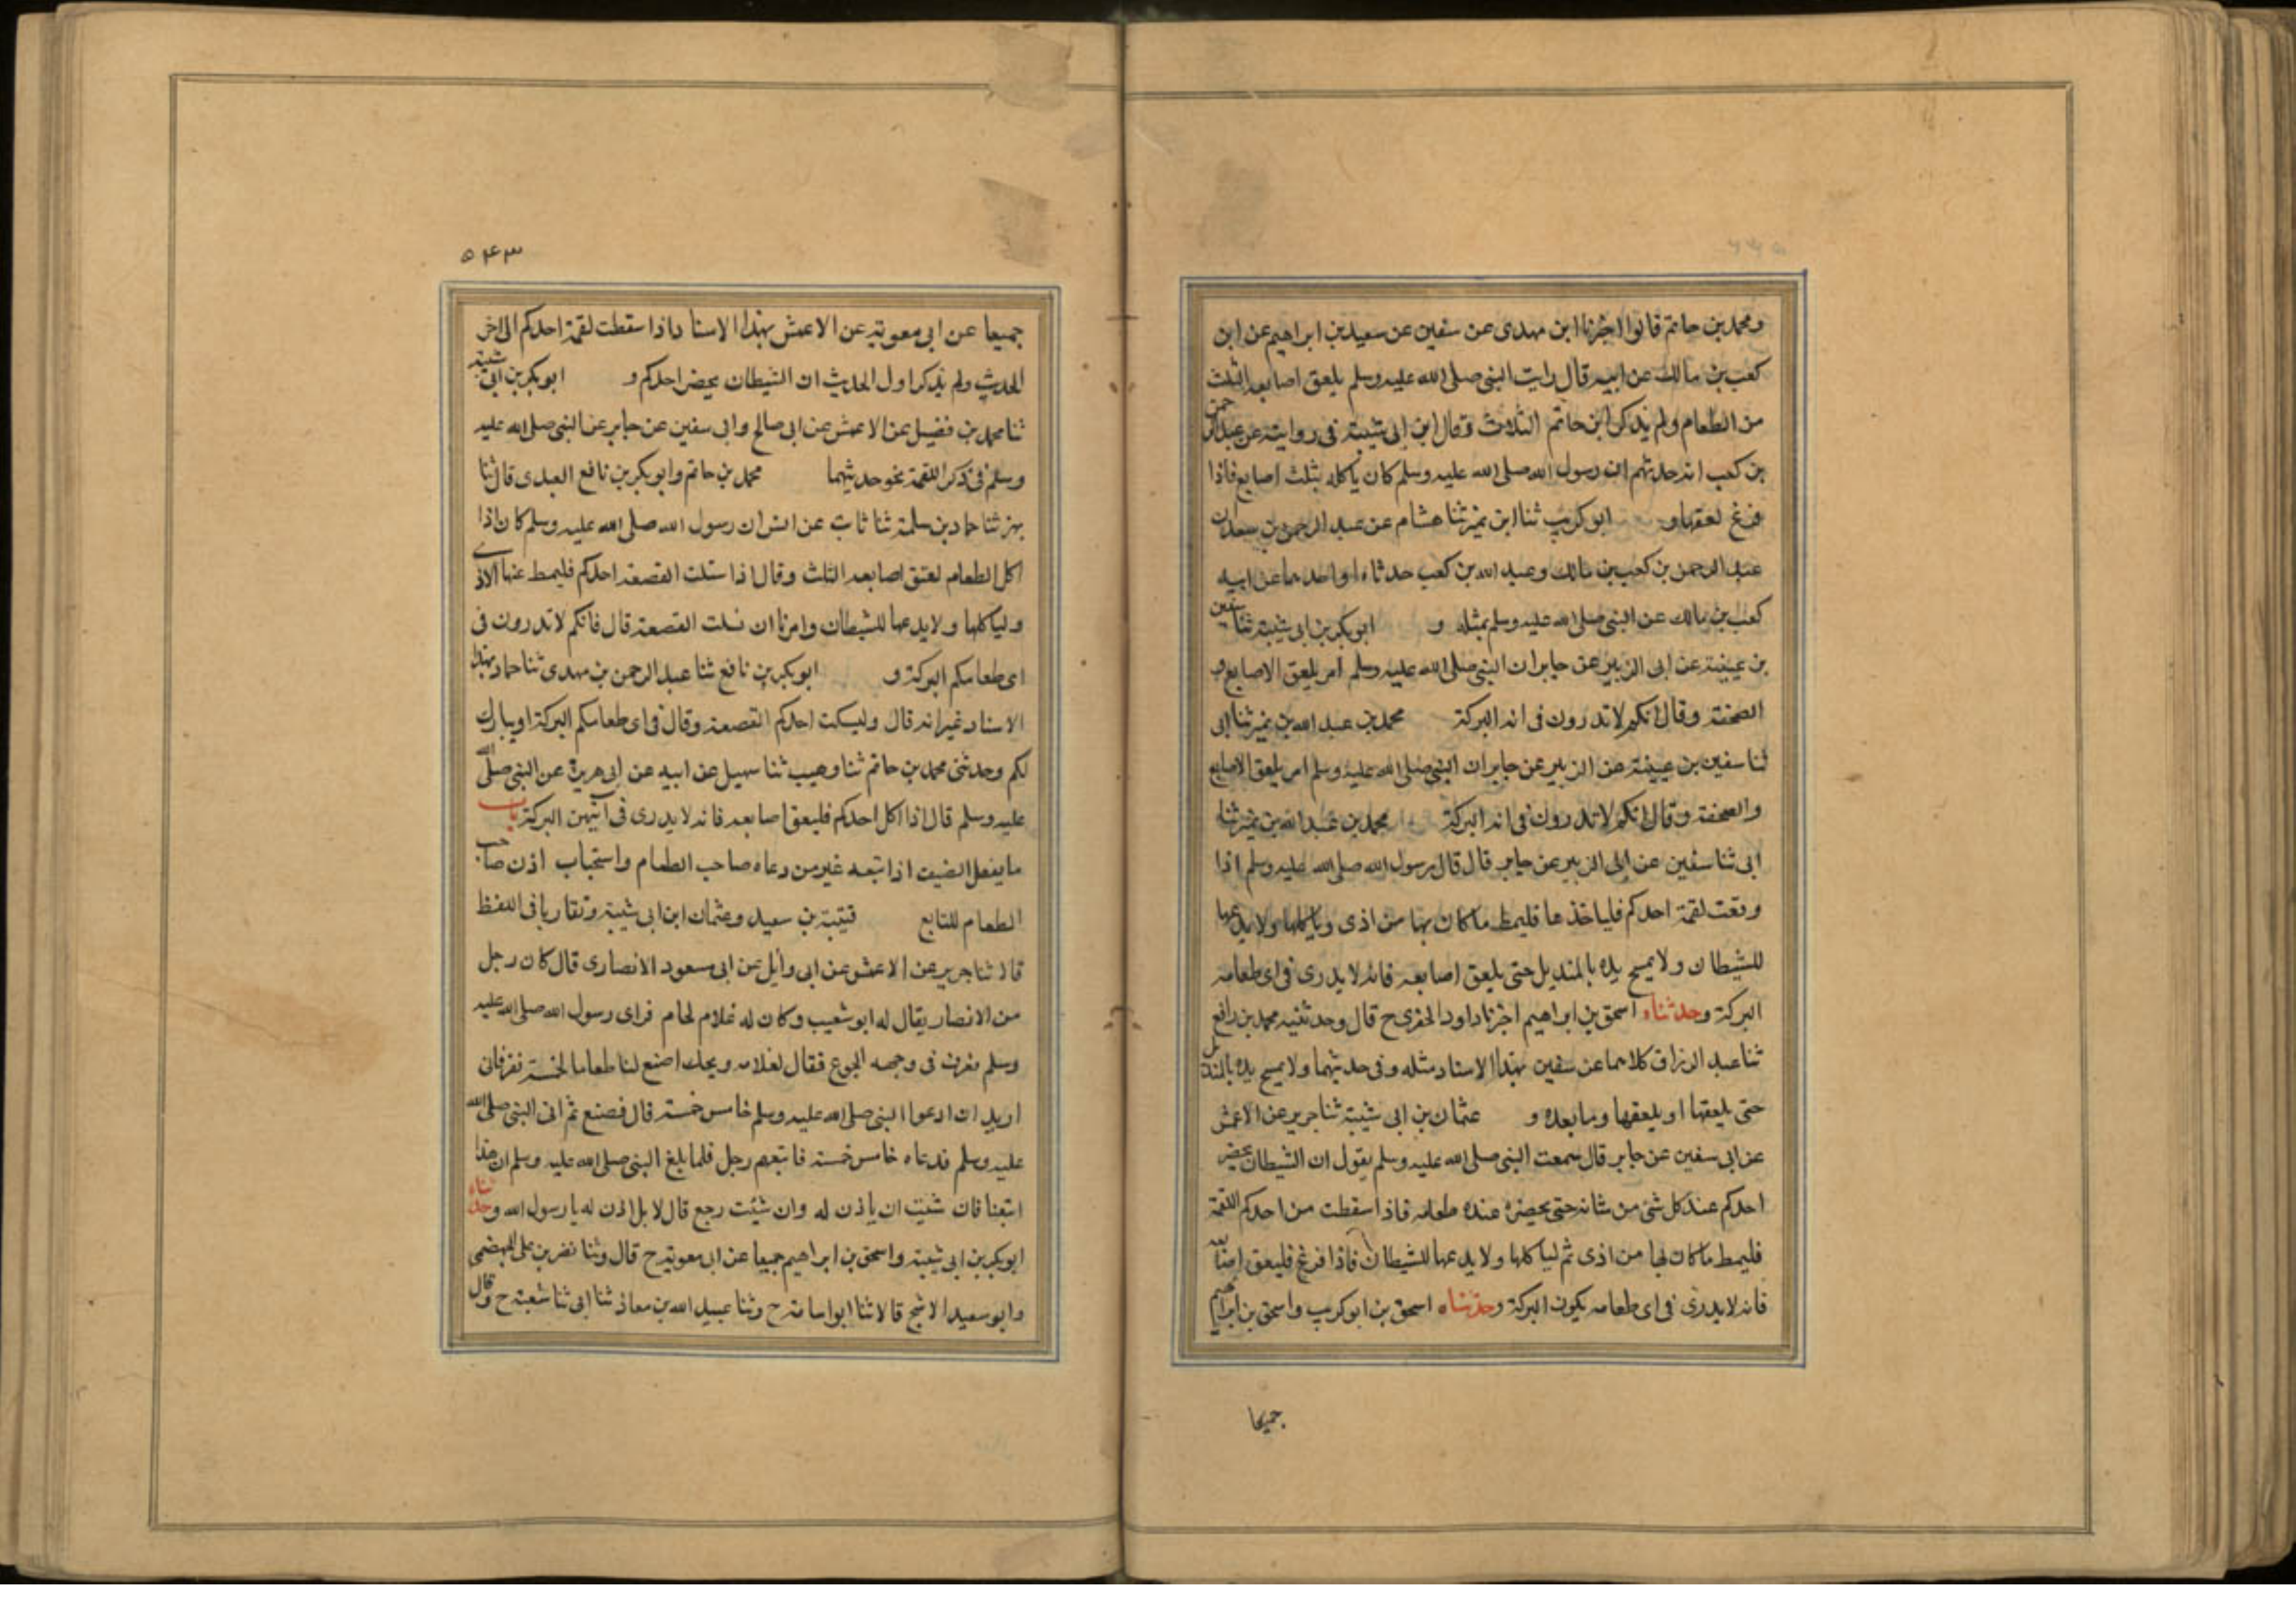 ومحمد بن حاتم قالوا اخبرنا ابن مهدى عن سفين عن سعيد بن ابراهيم عن ابن
كعب بن مالك عن ابيه قال رايت النبى صلى الله عليه وسلم يلعق اصابعه الثلث
من الطعام ولم يذكر ابن حاتم الثلاث وقال ابن ابى شيبة فى روايته عن عبد الرحمن
بن كعب انه حدثهم ان رسول الله صلى الله عليه وسلم كان ياكله بثلث اصابع فاذا
فرغ لعقها و ابو كريب ثنا ابن نمير ثنا هشام عن عبد الرحمن بن سعد ان
عبد الرحمن بن كعب بن مالك وعبد الله بن كعب حدثاه او احدهما عن ابيه
كعب بن مالك عن النبى صلى الله عليه وسلم بمثله و ابو بكر بن ابى شيبة ثنا سفين
بن عيينة عن ابى الزبير عن جابر ان النبى صلى الله عليه وسلم امر بلعق الاصابع و
الصحفة وقال انكم لا تدرون فى انه البركة محمد بن عبد الله بن نمير ثنا ابى
ثنا سفين بن عيينة عن الزبير عن جابر ان النبى صلى الله عليه وسلم امر بلعق الاصابع
والصحفة وقال انكم لا تدرون فى انه البركة محمد بن عبد الله بن نمير ثنا
ابى ثنا سفين عن ابى الزبير عن جابر قال قال رسول الله صلى الله عليه وسلم اذا
وقعت لقمة احدكم فلياخذها فليمط ما كان بها من اذى وياكلها ولا يدعها
للشيطان ولا يمسح يده بالمنديل حتى يلعق اصابعه فانه لا يدرى فى اى طعامه
البركة وحدثناه اسحق بن ابراهيم اخبرنا داود الحفرى ح قال وحدثنيه محمد بن رافع
ثنا عبد الرزاق كلاهما عن سفين بهذا الاسناد مثله وفى حديثهما ولا يمسح يده بالمنديل
حتى يلعقها او يلعقها وما بعده و عثمان بن ابى شيبة ثنا جرير عن الاعمش
عن ابى سفين عن جابر قال سمعت النبى صلى الله عليه وسلم يقول ان الشيطان يحضر
احدكم عند كل شئ من شانه حتى يحضره عنده طعامه فاذا سقطت من احدكم اللقمة
فليمط ما كان لها من اذى ثم لياكلها ولا يدعها للشيطان فاذا فرغ فليعق اصابعه
فانه لا يدرى فى اى طعامه يكون البركة وحدثناه اسحق بن ابو كريب واسحق بن ابراهيم
جميعا
٥٤٣
جميعا عن ابى معوية عن الاعمش بهذا الاسناد اذا سقطت لقمة احدكم الى اخر
الحديث ولم يذكر اول الحديث ان الشيطان يحضر احدكم و ابو بكر بن ابى شيبة
ثنا محمد بن فضيل عن الاعمش عن ابى صالح وابى سفين عن جابر عن النبى صلى الله عليه
وسلم فى ذكر اللقمة نحو حديثهما محمد بن حاتم وابو بكر بن نافع العبدى قال ثنا
بهز ثنا حماد بن سلمة ثنا ثابت عن انس ان رسول الله صلى الله عليه وسلم كان اذا
اكل الطعام لعق اصابعه الثلث وقال اذا ستلت القصعة احدكم فليمط عنها الاذى
ولياكلها ولا يدعها للشيطان وامرنا ان نسلت القصعة قال فانكم لا تدرون فى
اى طعامكم البركة و ابو بكر بن نافع ثنا عبد الرحمن بن مهدى ثنا حماد بهذا
الاسناد غير انه قال وليسكت احدكم القصعة وقال فى اى طعامكم البركة او يبارك
لكم وحدثنى محمد بن حاتم ثنا وهيب ثنا سهيل عن ابيه عن ابى هريرة عن النبى صلى الله
عليه وسلم قال اذا اكل احدكم فليعق اصابعه فانه لا يدرى فى ايتهن البركة باب
ما يفعل الضيف اذا تبعه غير من دعاه صاحب الطعام واستحباب اذن صاحب
الطعام للتابع قتيبة بن سعيد وعثمان ابن ابى شيبة وتقاربا فى اللفظ
قالا ثنا جرير عن الاعمش عن ابى وائل عن ابى مسعود الانصارى قال كان رجل
من الانصار يقال له ابو شعيب وكان له غلام لحام فراى رسول الله صلى الله عليه
وسلم فعرف فى وجهه الجوع فقال لغلامه ويحك اصنع لنا طعاما لخمسة نفر فانى
اريد ان ادعوا النبى صلى الله عليه وسلم خامس خمسة قال فصنع ثم اتى النبى صلى الله
عليه وسلم فدعاه خامس خمسة فاتبعهم رجل فلما بلغ النبى صلى الله عليه وسلم ان هذا
اتبعنا فان شئت ان ياذن له وان شئت رجع قال لا بل اذن له يا رسول الله وحدثناه
ابو بكر بن ابى شيبة واسحق بن ابراهيم جميعا عن ابى معوية ح قال وثنا نصر بن على الجهضمى
وابو سعيد الاشج قالا ثنا ابو اسامة ح وثنا عبيد الله بن معاذ ثنا ابى ثنا شعبة ح وقال